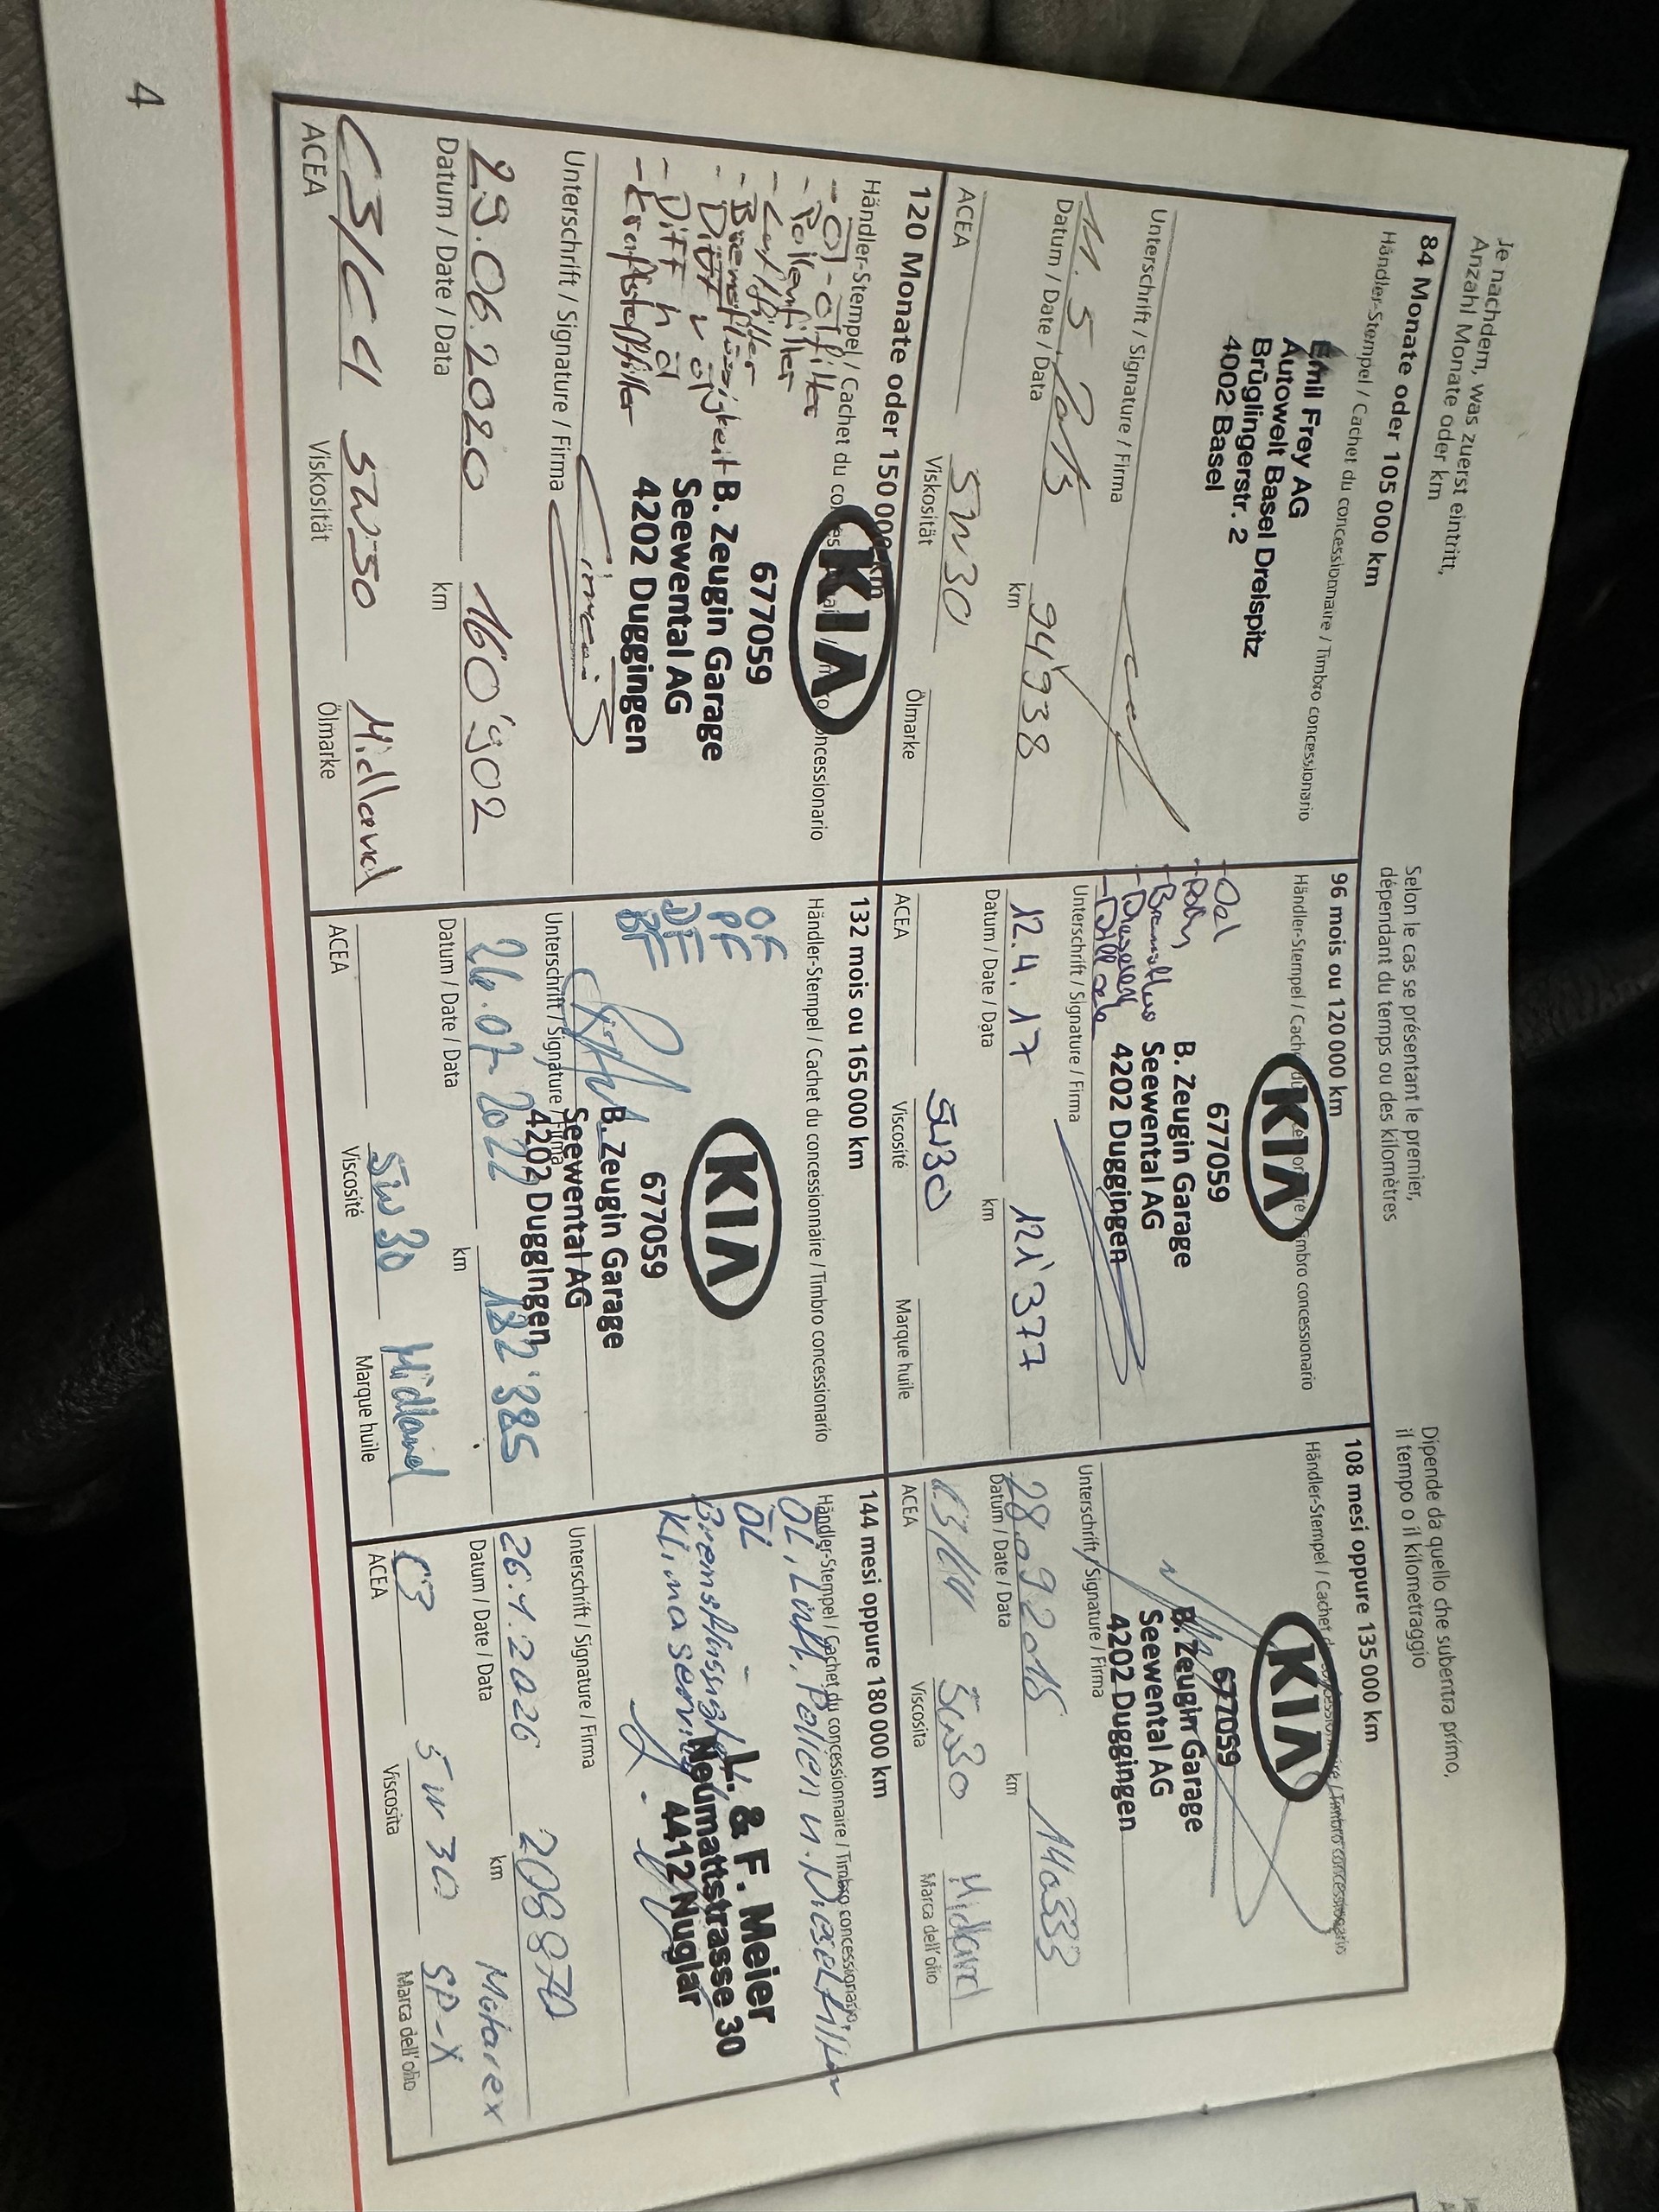 Je nachdem, was zuerst eintritt,
Anzahl Monate oder km
Selon le cas se présentant le premier,
dépendant du temps ou des kilomètres
Dipende da quello che subentra primo,
il tempo o il kilometraggio
84 Monate oder 105 000 km
Händler-Stempel / Cachet du concessionnaire / Timbro concessionario
Emil Frey AG
Autowelt Basel Dreispitz
Brüglingerstr. 2
4002 Basel
Unterschrift / Signature / Firma
11.5.2015 94'938
Datum / Date / Data km
5W30
ACEA Viskosität Ölmarke
96 mois ou 120 000 km
Händler-Stempel / Cachet du concessionnaire / Timbro concessionario
KIA
677059
B. Zeugin Garage
Seewental AG
4202 Duggingen
- Oel
Unterschrift / Signature / Firma
12.4.17 121'377
Datum / Date / Data km
5W30
ACEA Viscosité Marque huile
108 mesi oppure 135 000 km
Händler-Stempel / Cachet du concessionnaire / Timbro concessionario
KIA
677059
B. Zeugin Garage
Seewental AG
4202 Duggingen
Unterschrift / Signature / Firma
Datum / Date / Data km
5W30 Midland
ACEA Viscosita Marca dell'olio
120 Monate oder 150 000 km
Händler-Stempel / Cachet du concessionnaire / Timbro concessionario
KIA
677059
B. Zeugin Garage
Seewental AG
4202 Duggingen
- Öl - Ölfilter
- Pollenfilter
- Luftfilter
- Bremsflüssigkeit
- Diff v öl
- Diff h öl
- Kraftstofffilter
Unterschrift / Signature / Firma
29.06.2020 160'902
Datum / Date / Data km
C3/C4 5W30 Midland
ACEA Viskosität Ölmarke
132 mois ou 165 000 km
Händler-Stempel / Cachet du concessionnaire / Timbro concessionario
KIA
677059
B. Zeugin Garage
Seewental AG
4202 Duggingen
OF
PF
DF
BF
Unterschrift / Signature / Firma
26.07.2022 182'385
Datum / Date / Data km
5W30 Midland
ACEA Viscosité Marque huile
144 mesi oppure 180 000 km
Händler-Stempel / Cachet du concessionnaire / Timbro concessionario
ÖL, Luft, Pollen u. Dieselfilter
ÖL
Bremsflüssigkeit
Klimaservice
L. & F. Meier
Neumattstrasse 30
4412 Nuglar
Unterschrift / Signature / Firma
26.1.2026
Datum / Date / Data km
Motorex
C3 5W30 SP-X
ACEA Viscosita Marca dell'olio
4